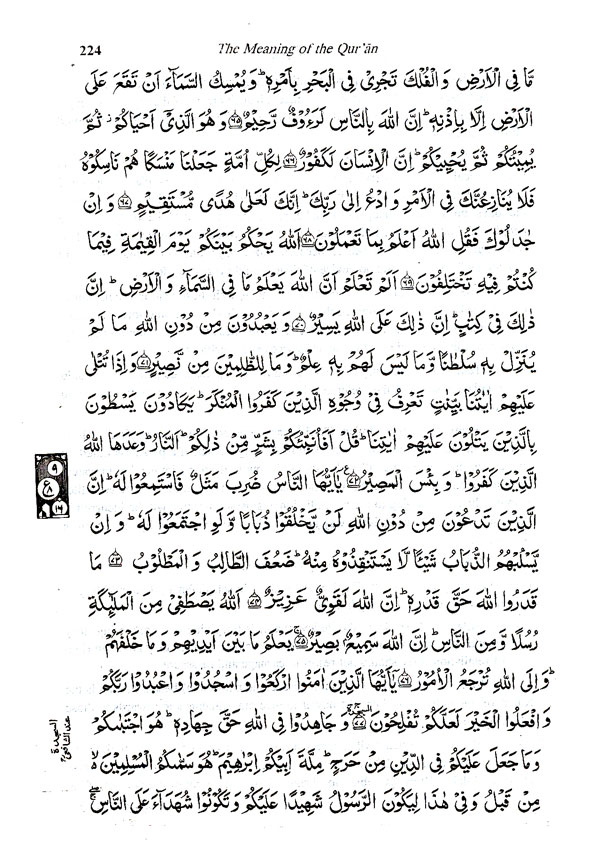 224
The Meaning of the Qur'ān
مَّا فِى الْاَرْضِ وَالْفُلْكَ تَجْرِىْ فِى الْبَحْرِ بِاَمْرِهٖ ؕ وَيُمْسِكُ السَّمَآءَ اَنْ تَقَعَ عَلَى
الْاَرْضِ اِلَّا بِاِذْنِهٖ ؕ اِنَّ اللّٰهَ بِالنَّاسِ لَرَءُوْفٌ رَّحِيْمٌ ﴿۶۵﴾ وَهُوَ الَّذِىْۤ اَحْيَاكُمْ ؗ ثُمَّ
يُمِيْتُكُمْ ثُمَّ يُحْيِيْكُمْ ؕ اِنَّ الْاِنْسَانَ لَكَفُوْرٌ ﴿۶۶﴾ لِكُلِّ اُمَّةٍ جَعَلْنَا مَنْسَكًا هُمْ نَاسِكُوْهُ
فَلَا يُنَازِعُنَّكَ فِى الْاَمْرِ وَادْعُ اِلٰى رَبِّكَ ؕ اِنَّكَ لَعَلٰى هُدًى مُّسْتَقِيْمٍ ﴿۶۷﴾ وَاِنْ
جٰدَلُوْكَ فَقُلِ اللّٰهُ اَعْلَمُ بِمَا تَعْمَلُوْنَ ﴿۶۸﴾ اَللّٰهُ يَحْكُمُ بَيْنَكُمْ يَوْمَ الْقِيٰمَةِ فِيْمَا
كُنْتُمْ فِيْهِ تَخْتَلِفُوْنَ ﴿۶۹﴾ اَلَمْ تَعْلَمْ اَنَّ اللّٰهَ يَعْلَمُ مَا فِى السَّمَآءِ وَالْاَرْضِ ؕ اِنَّ
ذٰلِكَ فِىْ كِتٰبٍ ؕ اِنَّ ذٰلِكَ عَلَى اللّٰهِ يَسِيْرٌ ﴿۷۰﴾ وَيَعْبُدُوْنَ مِنْ دُوْنِ اللّٰهِ مَا لَمْ
يُنَزِّلْ بِهٖ سُلْطٰنًا وَّمَا لَيْسَ لَهُمْ بِهٖ عِلْمٌ ؕ وَمَا لِلظّٰلِمِيْنَ مِنْ نَّصِيْرٍ ﴿۷۱﴾ وَاِذَا تُتْلٰى
عَلَيْهِمْ اٰيٰتُنَا بَيِّنٰتٍ تَعْرِفُ فِىْ وُجُوْهِ الَّذِيْنَ كَفَرُوا الْمُنْكَرَ ؕ يَكَادُوْنَ يَسْطُوْنَ
بِالَّذِيْنَ يَتْلُوْنَ عَلَيْهِمْ اٰيٰتِنَا ؕ قُلْ اَفَاُنَبِّئُكُمْ بِشَرٍّ مِّنْ ذٰلِكُمْ ؕ اَلنَّارُ ؕ وَعَدَهَا اللّٰهُ
الَّذِيْنَ كَفَرُوْا ؕ وَبِئْسَ الْمَصِيْرُ ﴿۷۲﴾ يٰۤاَيُّهَا النَّاسُ ضُرِبَ مَثَلٌ فَاسْتَمِعُوْا لَهٗ ؕ اِنَّ
الَّذِيْنَ تَدْعُوْنَ مِنْ دُوْنِ اللّٰهِ لَنْ يَّخْلُقُوْا ذُبَابًا وَّلَوِ اجْتَمَعُوْا لَهٗ ؕ وَاِنْ
يَّسْلُبْهُمُ الذُّبَابُ شَيْئًا لَّا يَسْتَنْقِذُوْهُ مِنْهُ ؕ ضَعُفَ الطَّالِبُ وَالْمَطْلُوْبُ ﴿۷۳﴾ مَا
قَدَرُوا اللّٰهَ حَقَّ قَدْرِهٖ ؕ اِنَّ اللّٰهَ لَقَوِىٌّ عَزِيْزٌ ﴿۷۴﴾ اَللّٰهُ يَصْطَفِىْ مِنَ الْمَلٰٓئِكَةِ
رُسُلًا وَّمِنَ النَّاسِ ؕ اِنَّ اللّٰهَ سَمِيْعٌۢ بَصِيْرٌ ﴿۷۵﴾ يَعْلَمُ مَا بَيْنَ اَيْدِيْهِمْ وَمَا خَلْفَهُمْ
ؕ وَاِلَى اللّٰهِ تُرْجَعُ الْاُمُوْرُ ﴿۷۶﴾ يٰۤاَيُّهَا الَّذِيْنَ اٰمَنُوا ارْكَعُوْا وَاسْجُدُوْا وَاعْبُدُوْا رَبَّكُمْ
وَافْعَلُوا الْخَيْرَ لَعَلَّكُمْ تُفْلِحُوْنَ ﴿۷۷﴾ وَجَاهِدُوْا فِى اللّٰهِ حَقَّ جِهَادِهٖ ؕ هُوَ اجْتَبٰىكُمْ
وَمَا جَعَلَ عَلَيْكُمْ فِى الدِّيْنِ مِنْ حَرَجٍ ؕ مِلَّةَ اَبِيْكُمْ اِبْرٰهِيْمَ ؕ هُوَ سَمّٰىكُمُ الْمُسْلِمِيْنَ ۙ
مِنْ قَبْلُ وَفِىْ هٰذَا لِيَكُوْنَ الرَّسُوْلُ شَهِيْدًا عَلَيْكُمْ وَتَكُوْنُوْا شُهَدَآءَ عَلَى النَّاسِ ۚ
السجدة
عند الشافعي